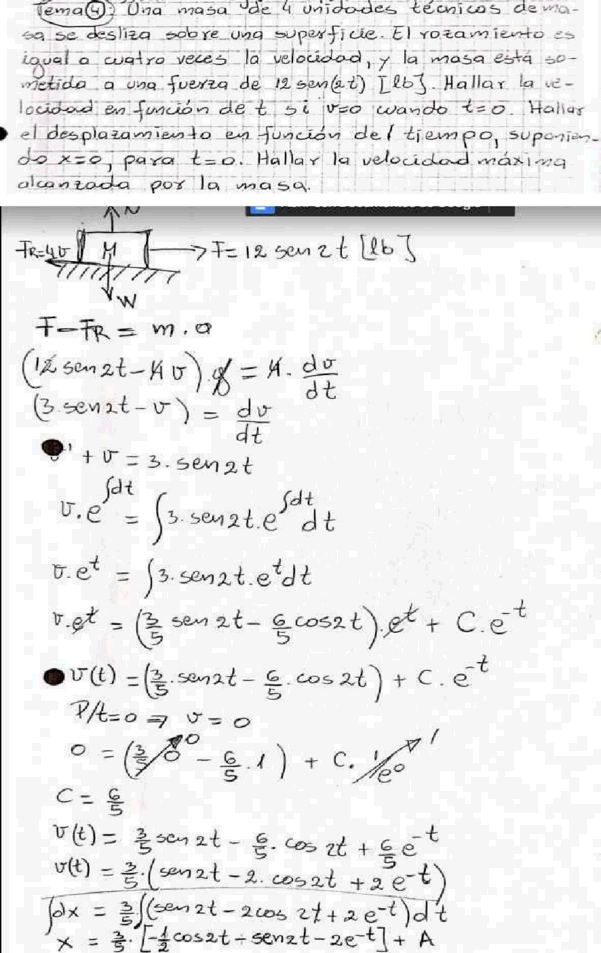 Tema (4) Una masa de 4 unidades técnicas de ma-
sa se desliza sobre una superficie. El rozamiento es
igual a cuatro veces la velocidad, y la masa está so-
metida a una fuerza de 12 sen(2t) [lb]. Hallar la ve-
locidad en función de t si v=0 cuando t=0. Hallar
el desplazamiento en función del tiempo, suponien-
do x=0, para t=0. Hallar la velocidad máxima
alcanzada por la masa.
N
FR=4v M F=12 sen 2t [lb]
W
F-FR = m.a
(12 sen2t-4v) = 4. dv/dt
(3.sen2t-v) = dv/dt
+ v = 3.sen2t
v.e^∫dt = ∫3.sen2t.e^∫dt dt
v.e^t = ∫3.sen2t.e^t dt
v.e^t = (3/5 sen 2t - 6/5 cos2t).e^t + C.e^-t
v(t) = (3/5.sen2t - 6/5.cos 2t) + C.e^-t
P/t=0 ⇒ v=0
0 = (3/5 0 - 6/5.1) + C. 1/e^0
C = 6/5
v(t) = 3/5 sen 2t - 6/5. cos 2t + 6/5 e^-t
v(t) = 3/5.(sen2t - 2.cos2t + 2e^-t)
∫dx = 3/5∫(sen 2t - 2cos 2t + 2e^-t)dt
x = 3/5.[-1/2 cos2t - sen2t - 2e^-t] + A